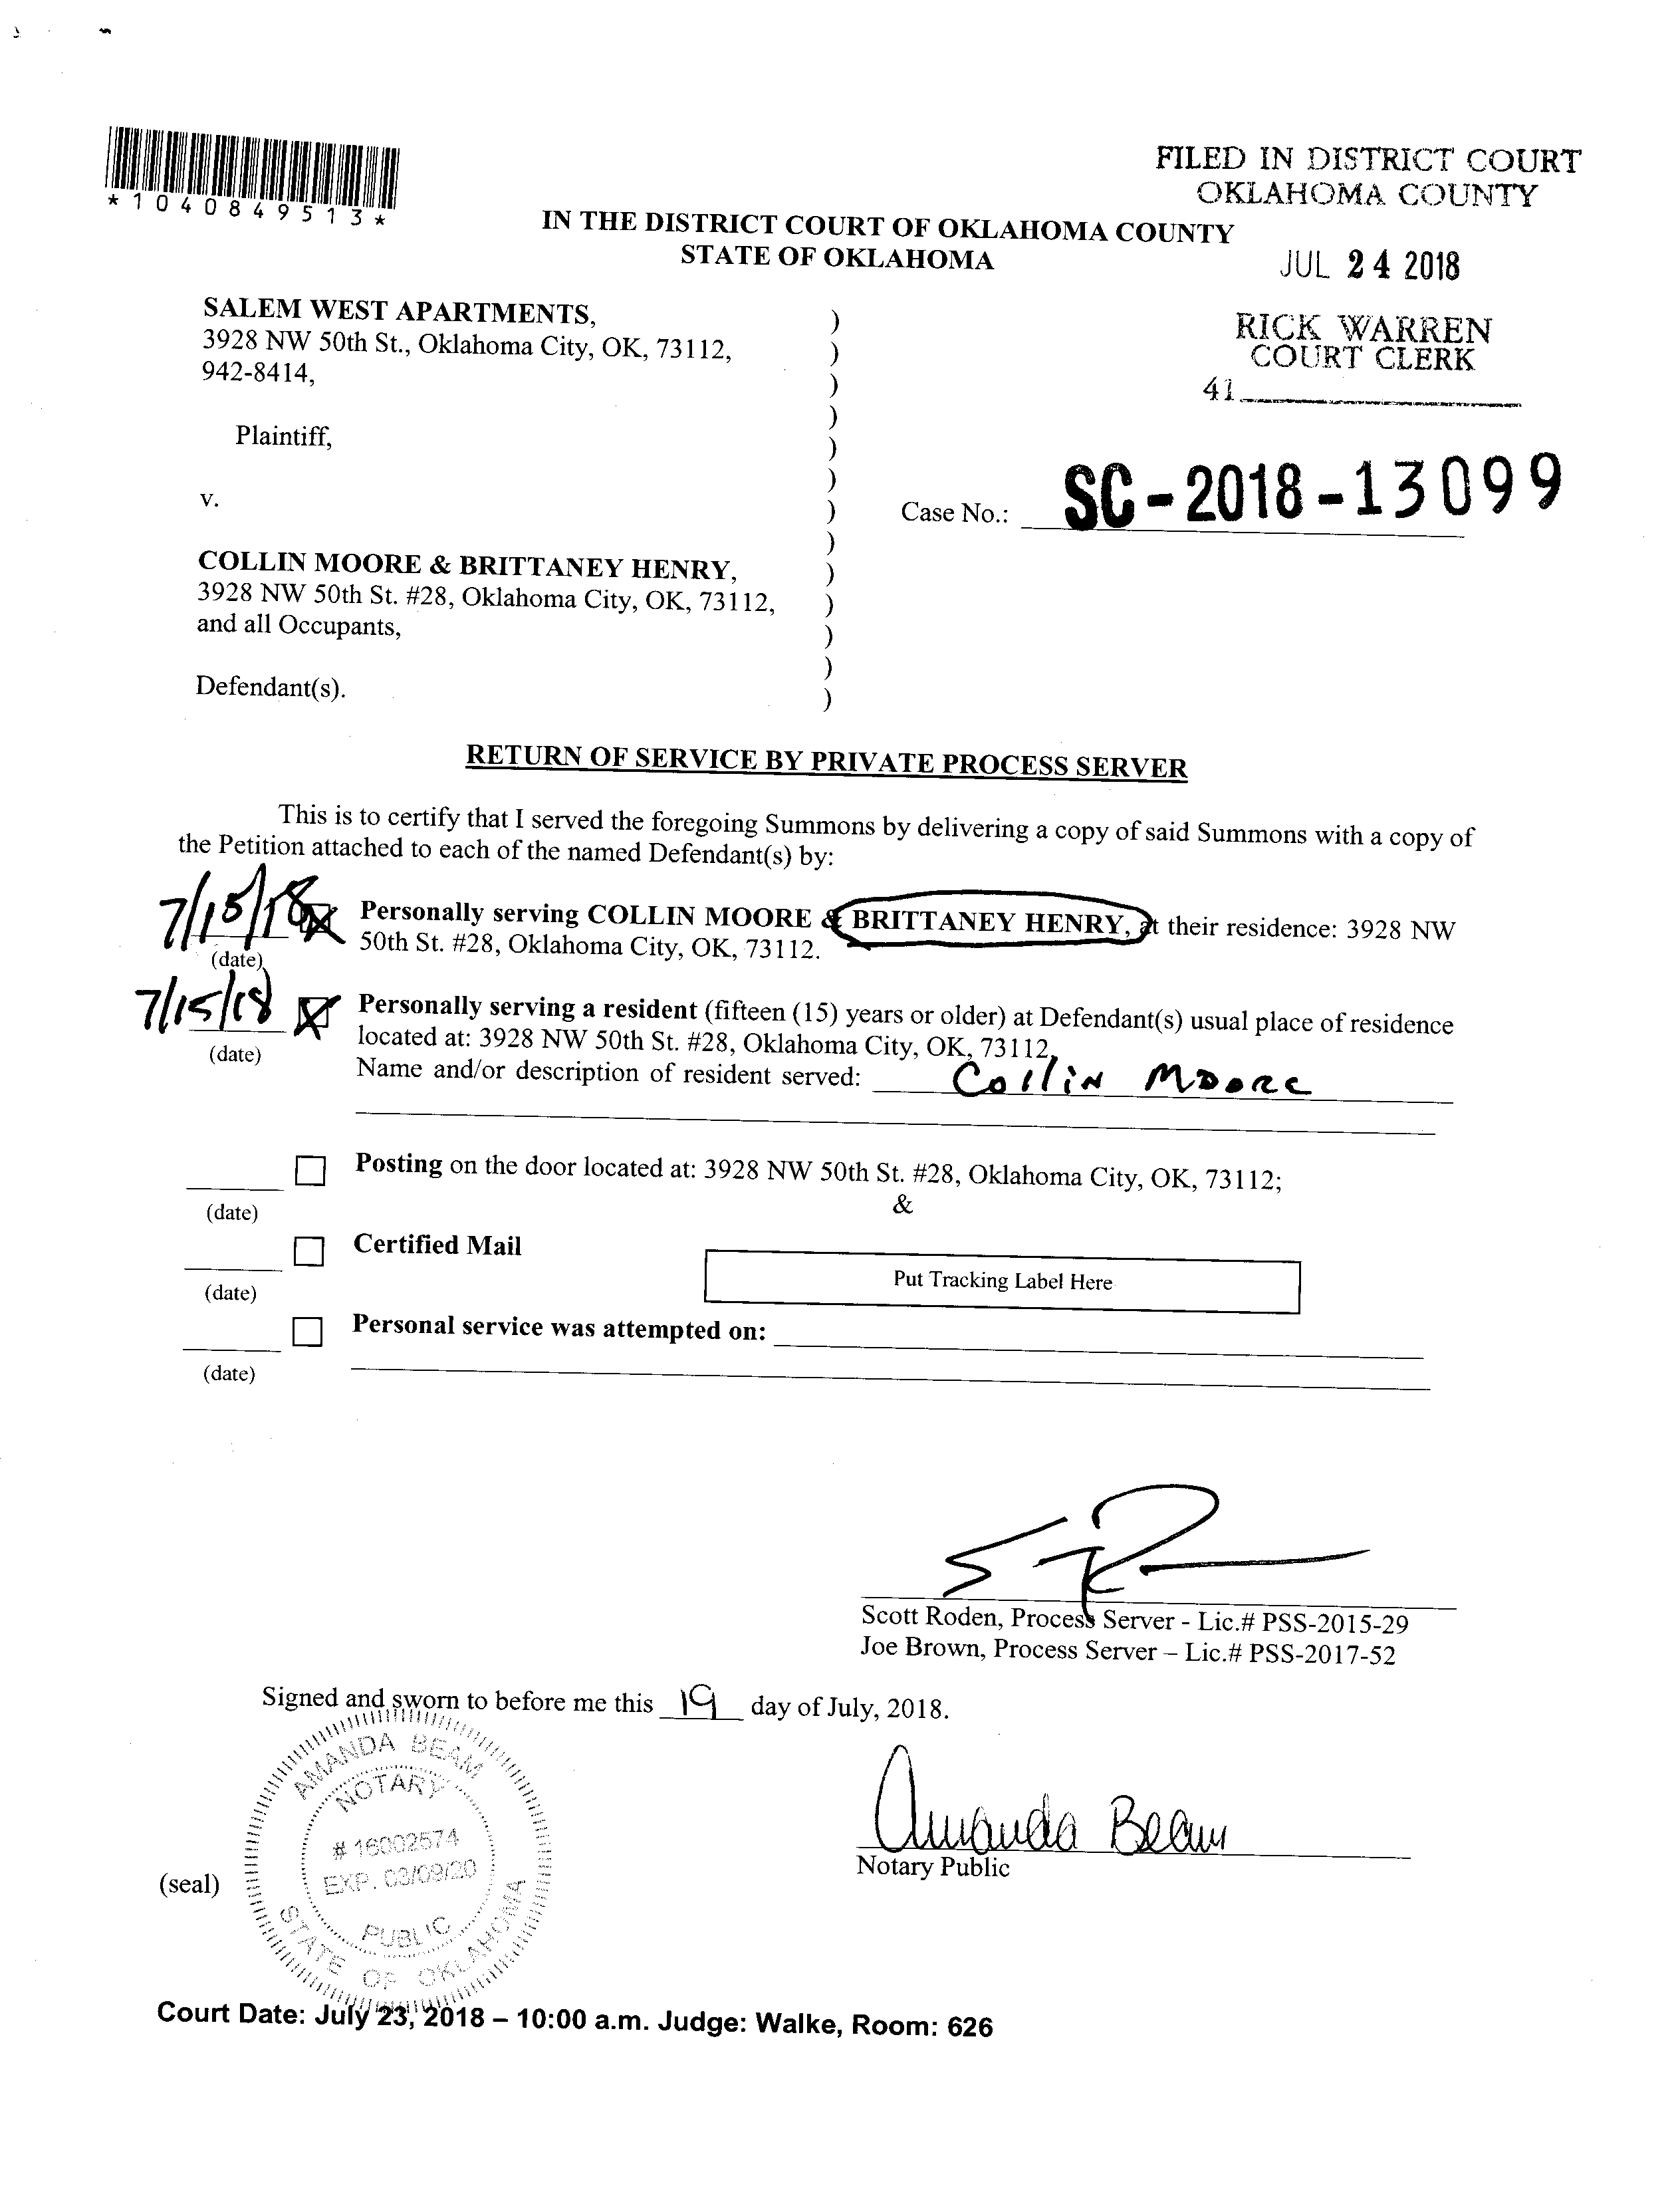 *1040849513*
FILED IN DISTRICT COURT
OKLAHOMA COUNTY
IN THE DISTRICT COURT OF OKLAHOMA COUNTY
STATE OF OKLAHOMA
JUL 24 2018
RICK WARREN
COURT CLERK
41
SALEM WEST APARTMENTS, )
3928 NW 50th St., Oklahoma City, OK, 73112, )
942-8414, )
)
Plaintiff, )
)
v. ) Case No.: SC-2018-13099
)
COLLIN MOORE & BRITTANEY HENRY, )
3928 NW 50th St. #28, Oklahoma City, OK, 73112, )
and all Occupants, )
)
Defendant(s). )
RETURN OF SERVICE BY PRIVATE PROCESS SERVER
This is to certify that I served the foregoing Summons by delivering a copy of said Summons with a copy of
the Petition attached to each of the named Defendant(s) by:
7/15/18 Personally serving COLLIN MOORE & BRITTANEY HENRY, at their residence: 3928 NW
50th St. #28, Oklahoma City, OK, 73112.
(date)
7/15/18 Personally serving a resident (fifteen (15) years or older) at Defendant(s) usual place of residence
located at: 3928 NW 50th St. #28, Oklahoma City, OK, 73112.
(date)
Name and/or description of resident served: Collin Moore
Posting on the door located at: 3928 NW 50th St. #28, Oklahoma City, OK, 73112;
&
(date)
Certified Mail
Put Tracking Label Here
(date)
Personal service was attempted on:
(date)
Scott Roden, Process Server - Lic.# PSS-2015-29
Joe Brown, Process Server – Lic.# PSS-2017-52
Signed and sworn to before me this 19 day of July, 2018.
AMANDA BEAM
NOTARY
# 16002574
EXP. 03/09/20
PUBLIC
STATE OF OKLAHOMA
Amanda Beam
Notary Public
(seal)
Court Date: July 23, 2018 – 10:00 a.m. Judge: Walke, Room: 626